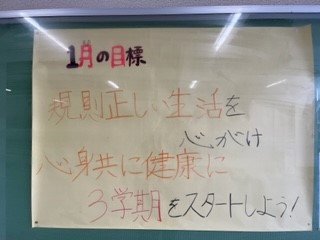 1月の目標
規則正しい生活を
心がけ
心身共に健康に
3学期をスタートしよう!